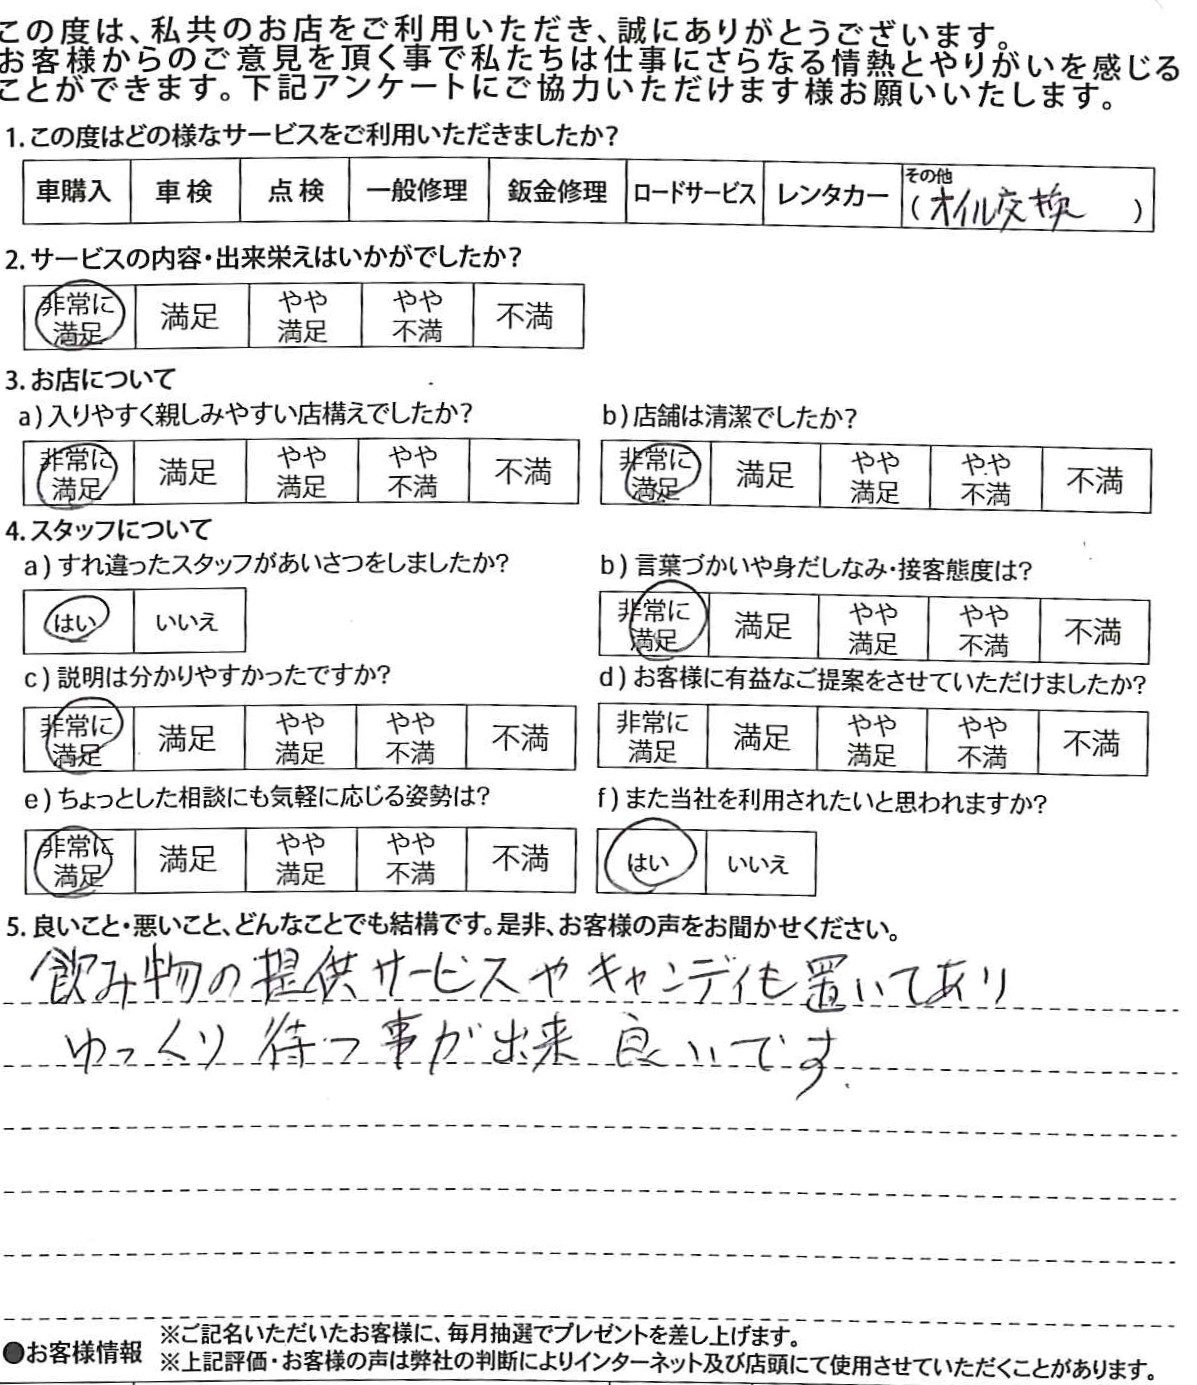 この度は、私共のお店をご利用いただき、誠にありがとうございます。
お客様からのご意見を頂く事で私たちは仕事にさらなる情熱とやりがいを感じる
ことができます。下記アンケートにご協力いただけます様お願いいたします。
1.この度はどの様なサービスをご利用いただきましたか?
車購入 車検 点検 一般修理 鈑金修理 ロードサービス レンタカー その他
(オイル交換 )
2.サービスの内容・出来栄えはいかがでしたか?
非常に満足 満足 やや満足 やや不満 不満
3.お店について
a)入りやすく親しみやすい店構えでしたか? b)店舗は清潔でしたか?
非常に満足 満足 やや満足 やや不満 不満 非常に満足 満足 やや満足 やや不満 不満
4.スタッフについて
a)すれ違ったスタッフがあいさつをしましたか? b)言葉づかいや身だしなみ・接客態度は?
はい いいえ 非常に満足 満足 やや満足 やや不満 不満
c)説明は分かりやすかったですか? d)お客様に有益なご提案をさせていただけましたか?
非常に満足 満足 やや満足 やや不満 不満 非常に満足 満足 やや満足 やや不満 不満
e)ちょっとした相談にも気軽に応じる姿勢は? f)また当社を利用されたいと思われますか?
非常に満足 満足 やや満足 やや不満 不満 はい いいえ
5.良いこと・悪いこと、どんなことでも結構です。是非、お客様の声をお聞かせください。
飲み物の提供サービスやキャンディも置いてあり
ゆっくり待つ事が出来良いです.
●お客様情報 ※ご記名いただいたお客様に、毎月抽選でプレゼントを差し上げます。
※上記評価・お客様の声は弊社の判断によりインターネット及び店頭にて使用させていただくことがあります。